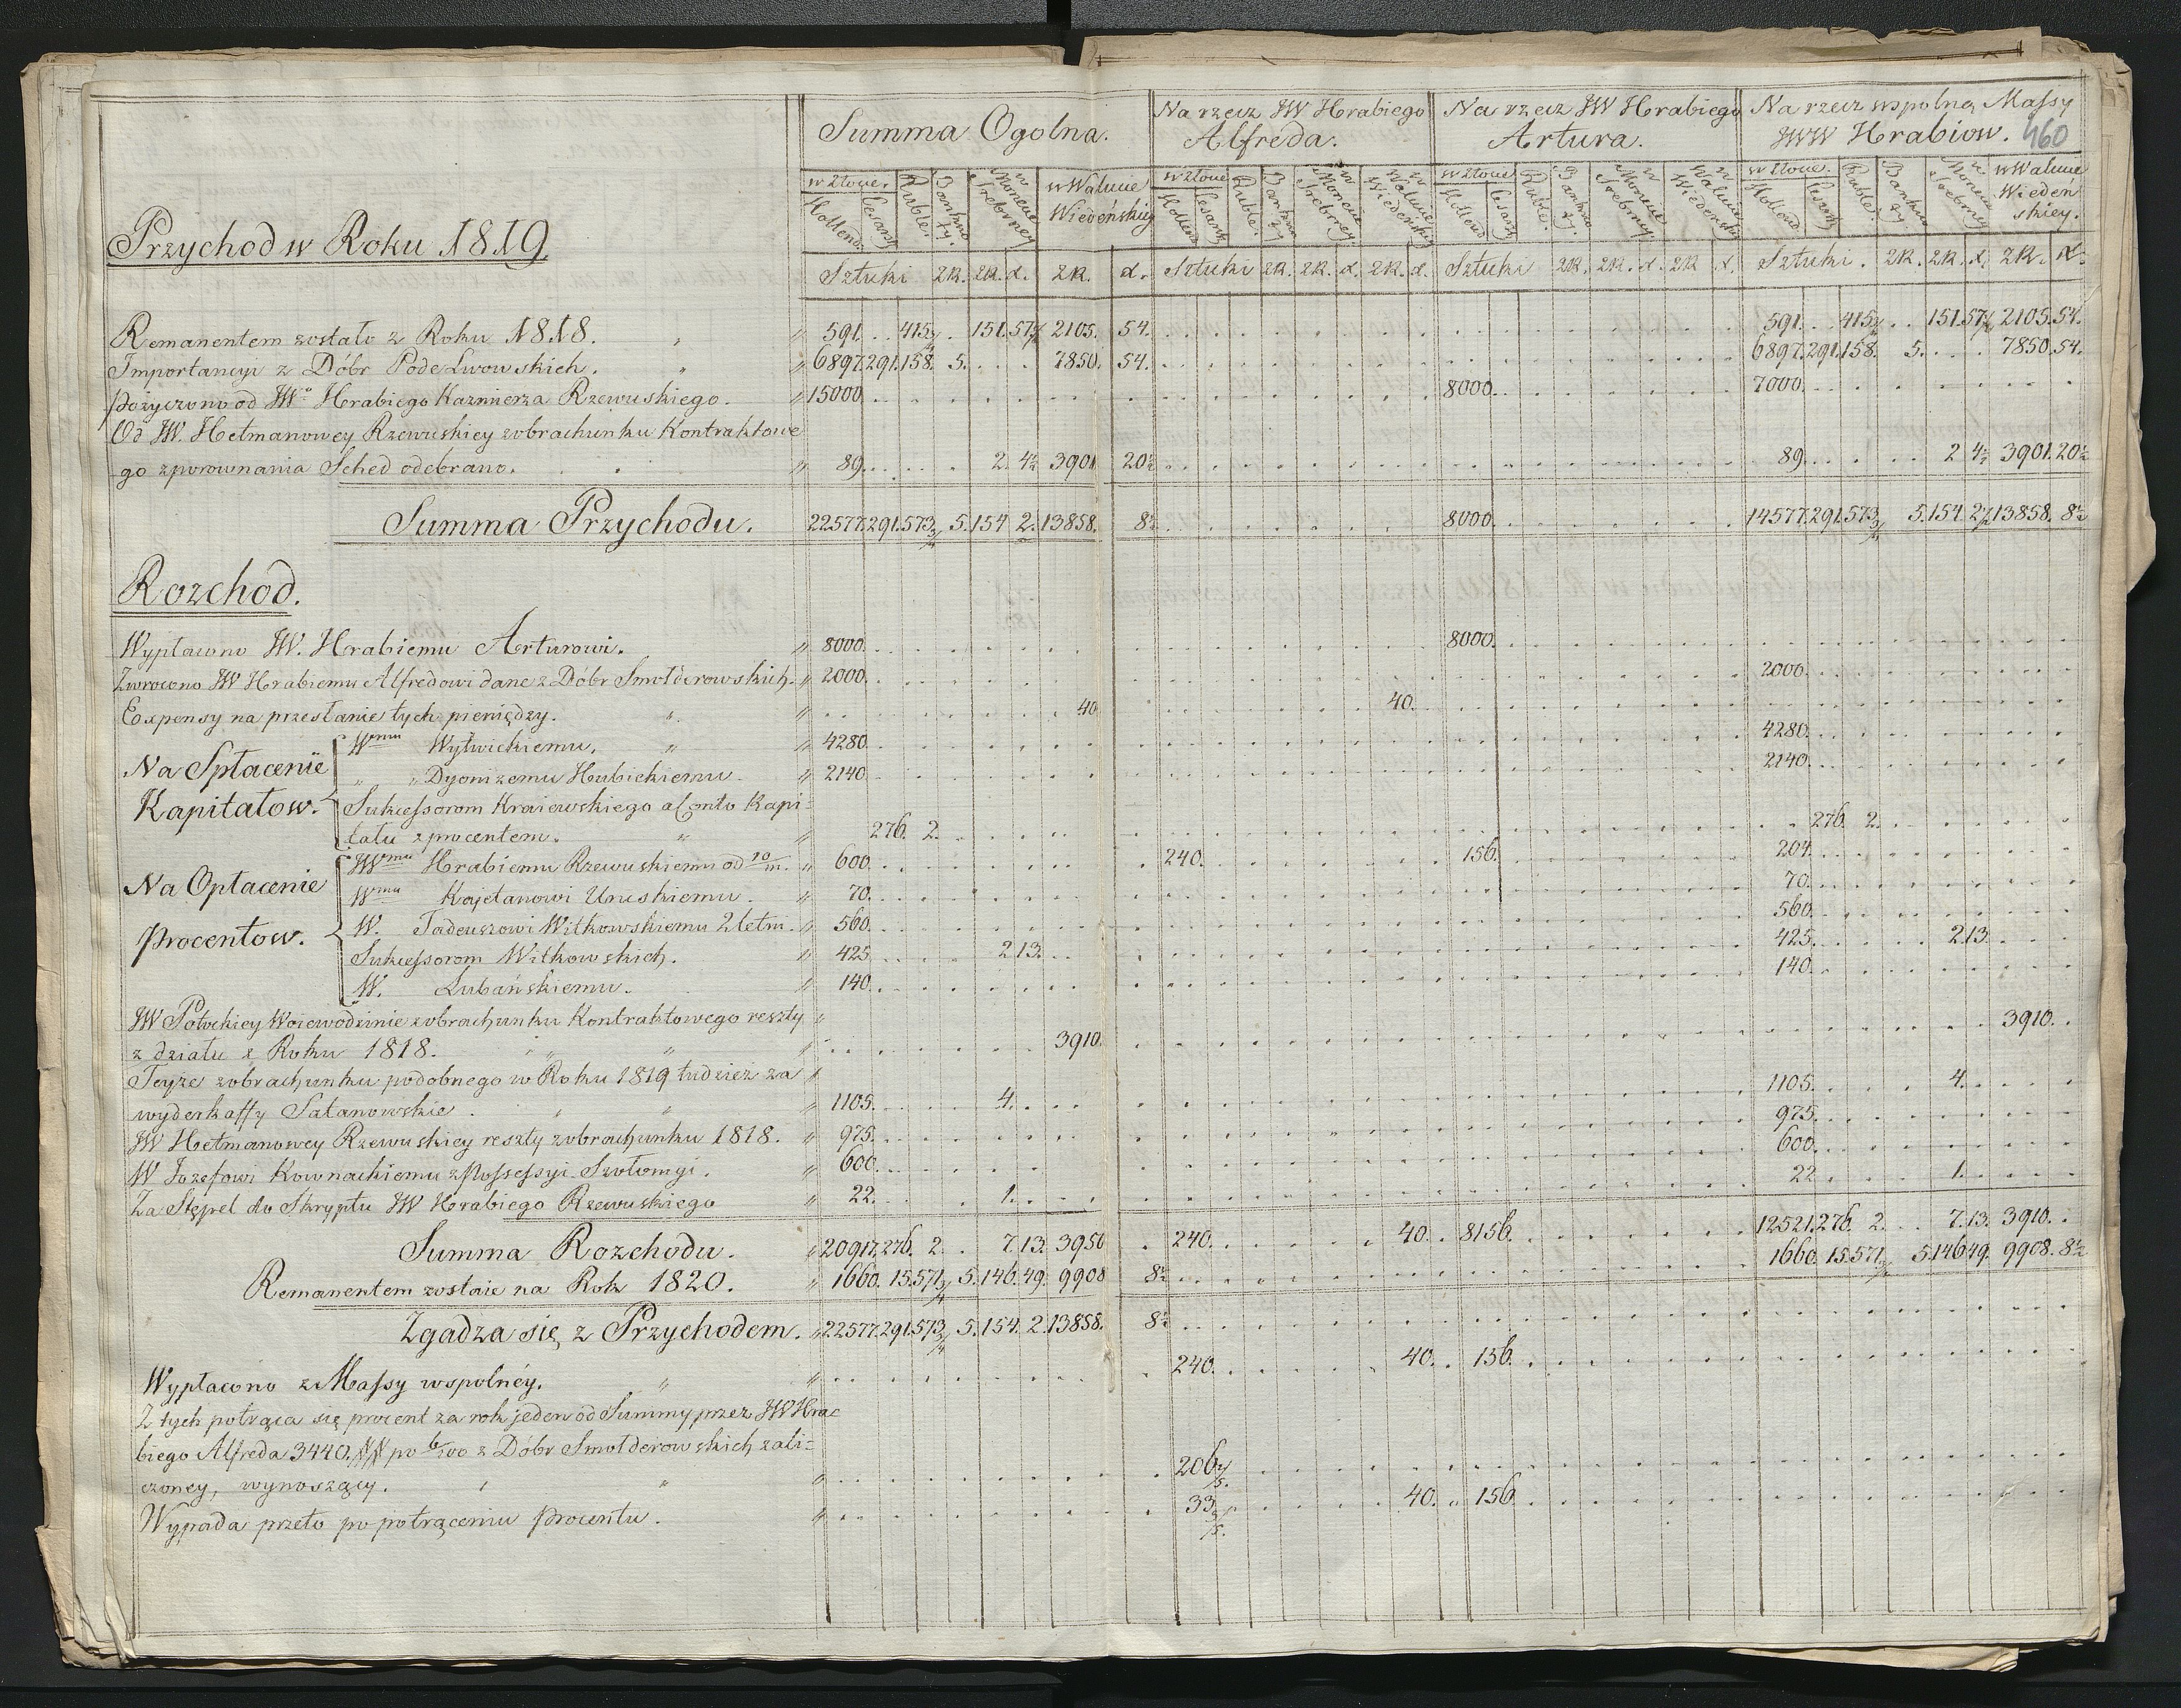 Summa Ogolna. Na rzecz JW Hrabiego Alfreda. Na rzecz JW Hrabiego Artura. Na rzecz wspolną Massy JWW Hrabiow. 460
w złocie. Ruble. Bankno ty. w Monecie Srebrney w Walucie Wiedeńskiey w złocie Rubla. Bankno ty w Monecie Srebrney. w Walucie Wiedeńskiey w złocie Ruble. Bankno ty. w Monecie Srebrney. w Walucie Wiedeńskiey w złocie. Ruble. Bankno ty. w Monecie Srebrney w Walucie Wiedeń skiey.
Hollend. Cesarsk Hollend. Cesarsk Hollend Cesarsk Hollend Cesarsk
Przychod w Roku 1819.
Sztuki ZR. ZR. d. ZR. d. Sztuki ZR. ZR. d. ZR. d. Sztuki ZR. ZR. d. ZR d. Sztuki. ZR. ZR. d. ZR. d.
Remanentem zostało z Roku 1818. 591. 415 151. 57 2105. 54. 591. 415 151. 57 2105. 54.
Importancyi z Dóbr PodeLwowskich. 6897. 291. 158. 5. 7850. 54. 6897. 291. 158. 5. 7850. 54.
Pożyczono od JWo Hrabiego Kazmierza Rzewuskiego. 15000. 8000. 7000.
Od JW. Hetmanowey Rzewuskiey z obrachunku Kontraktowe
go z porownania Sched odebrano. 89. 2. 4½ 3901. 20½ 89. 2 4½ 3901. 20½
Summa Przychodu. 22577. 291. 573¾ 5. 154 2. 13858. 8½ 8000. 14577. 291. 573¾ 5. 154. 2 13858. 8½
Rozchod.
Wypłacono JW. Hrabiemu Arturowi. 8000. 8000.
Zwrocono JW Hrabiemu Alfredowi dane z Dóbr Smołderowskich. 2000. 2000.
Expensy na przesłanie tych pieniędzy. 40 40.
Na Spłacenie Kapitałow.
Wmu Wyłwickiemu. 4280. 4280.
" " Dyonizemu Hubickiemu 2140. 2140.
Sukcessorom Kraiewskiego a Conto Kapi=
tału z procentem. 276. 2. 276. 2.
Na Opłacenie Procentow.
JWmu Hrabiemu Rzewuskiemu od 10/m. 600. 240. 156. 204.
Wmu Kajetanowi Uruskiemu. 70. 70.
W. Tadeuszowi Witkowskiemu 2letni. 560. 560.
Sukcessorom Witkowskich. 425. 2 13. 425. 2. 13.
W. Lubańskiemu. 140. 140.
JW Potockiey Woiewodzinie z obrachunku Kontraktowego reszty
z działu z Roku 1818. 3910. 3910.
Teyże z obrachunku podobnego w Roku 1819 tudzież za
wyderkaffy Satanowskie. 1105. 4. 1105. 4.
JW Hetmanowey Rzewuskiey reszty z obrachunku 1818. 975. 975.
W Jozefowi Kownackiemu z Possessyi Szołomyi. 600. 600.
Za Stępel do Skryptu JW Hrabiego Rzewuskiego 22. 1. 22. 1.
Summa Rozchodu. 20917. 276. 2. 7. 13. 3950 240. 40. 8156. 12521. 276. 2. 7. 13. 3910.
Remanentem zostaie na Rok 1820. 1660. 15. 571¾ 5. 146. 49. 9908 8½ 1660. 15. 571¾ 5. 146. 49. 9908. 8½
Zgadza się z Przychodem. 22577. 291. 573¾ 5. 154. 2. 13858. 8½
Wypłacono z Massy wspolnéy. 240. 40. 156.
Z tych potrąca się procent za rok jeden od Summy przez JW Hra=
biego Alfreda 3440. ## po 6/100 z Dóbr Smołderowskich zali=
czoney, wynoszący. 206 2/5.
Wypada przeto po potrąceniu Procentu. 33 3/5. 40. 156.